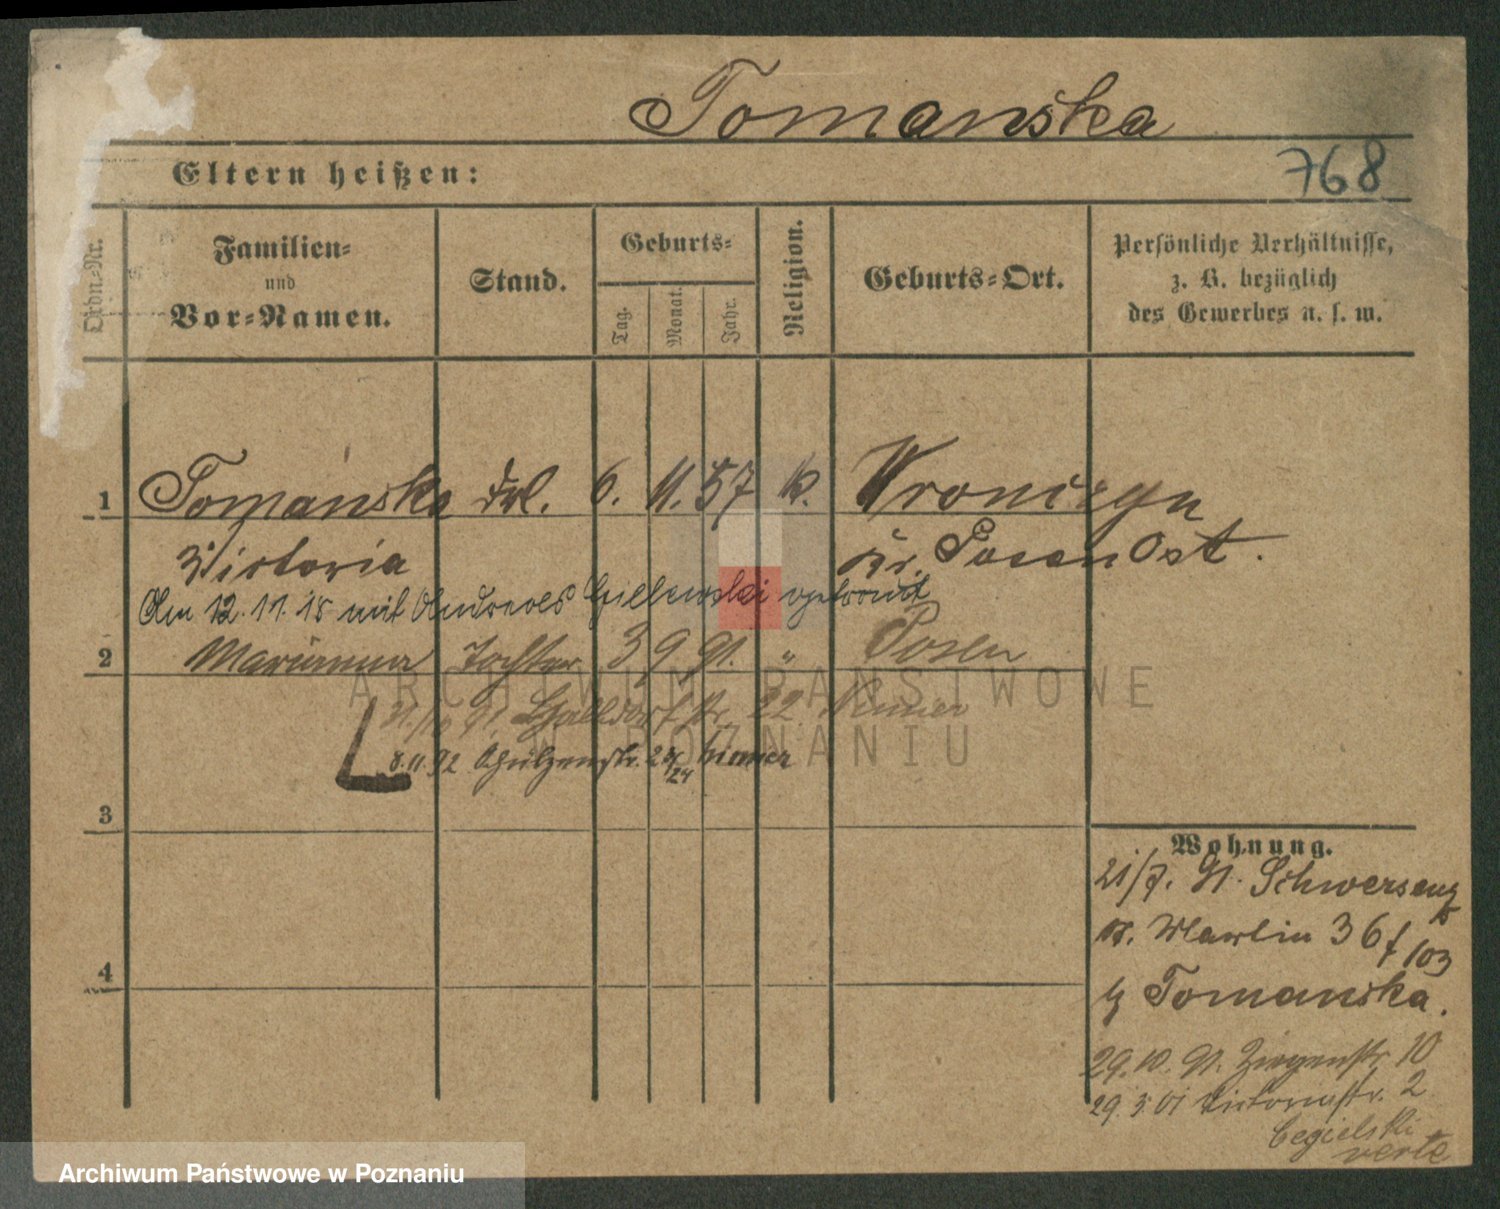 Tomanska
Eltern heißen:
768
Ordn.-Nr.
Familien-
und
Vor-Namen.
Stand.
Geburts-
Tag.
Monat.
Jahr.
Religion.
Geburts-Ort.
Persönliche Verhältnisse,
z. B. bezüglich
des Gewerbes u. s. w.
1 Tomanska Frl. 6. 11. 57 k. Wronczyn
Victoria Kr. Posen Ost.
Am 12. 11. 18 mit Andreas getraut
2 Marianna Tochter 3 9 91. " Posen
91. 22.
8.11.92 Schützenstr.
3
Wohnung.
21/7. 91. Schwersenz
36/103
4
Tomanska.
29.10. 91. Ziegenstr. 10
29. 3. 01 Victoriastr. 2
Cegielski
verte
ARCHIWUM PAŃSTWOWE
W POZNANIU
Archiwum Państwowe w Poznaniu